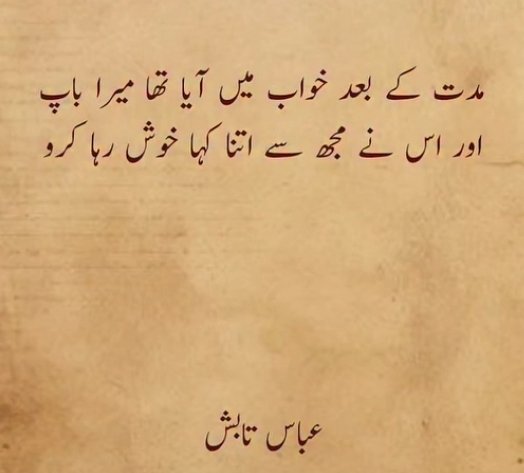 مدت کے بعد خواب میں آیا تھا میرا باپ
اور اس نے مجھ سے اتنا کہا خوش رہا کرو
عباس تابش